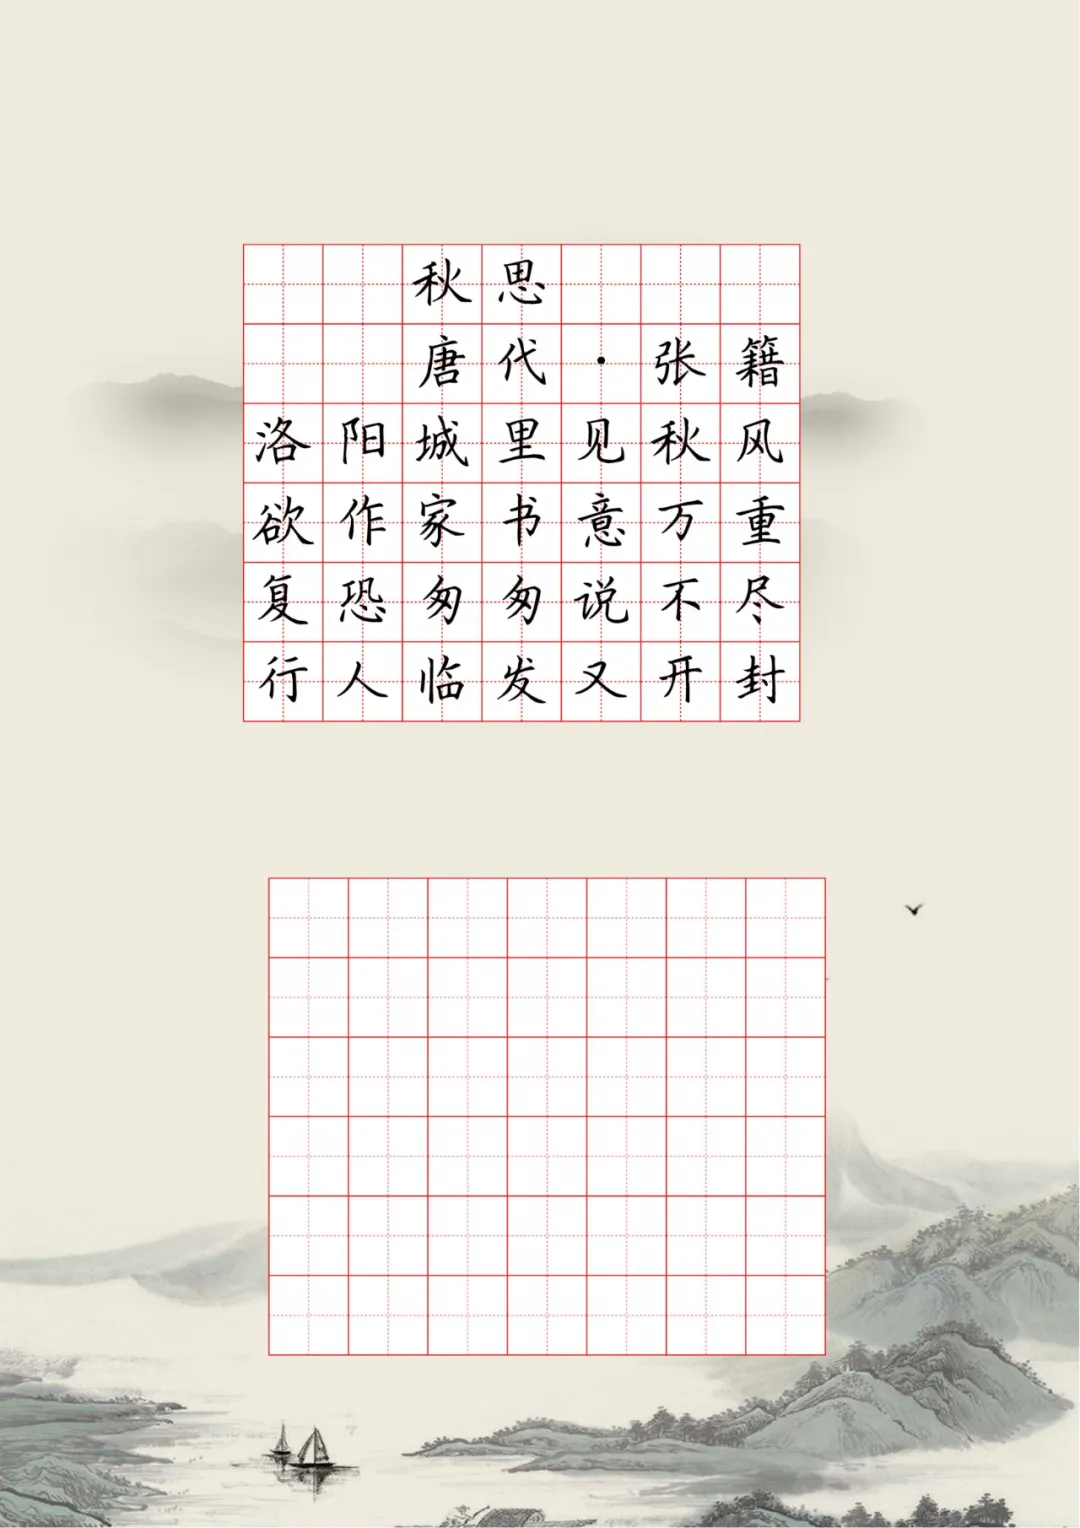 秋思
唐代·张籍
洛阳城里见秋风
欲作家书意万重
复恐匆匆说不尽
行人临发又开封